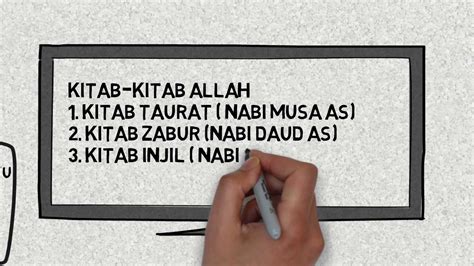 KITAB-KITAB ALLAH
1. KITAB TAURAT ( NABI MUSA AS)
2. KITAB ZABUR (NABI DAUD AS)
3. KITAB INJIL ( NABI
U